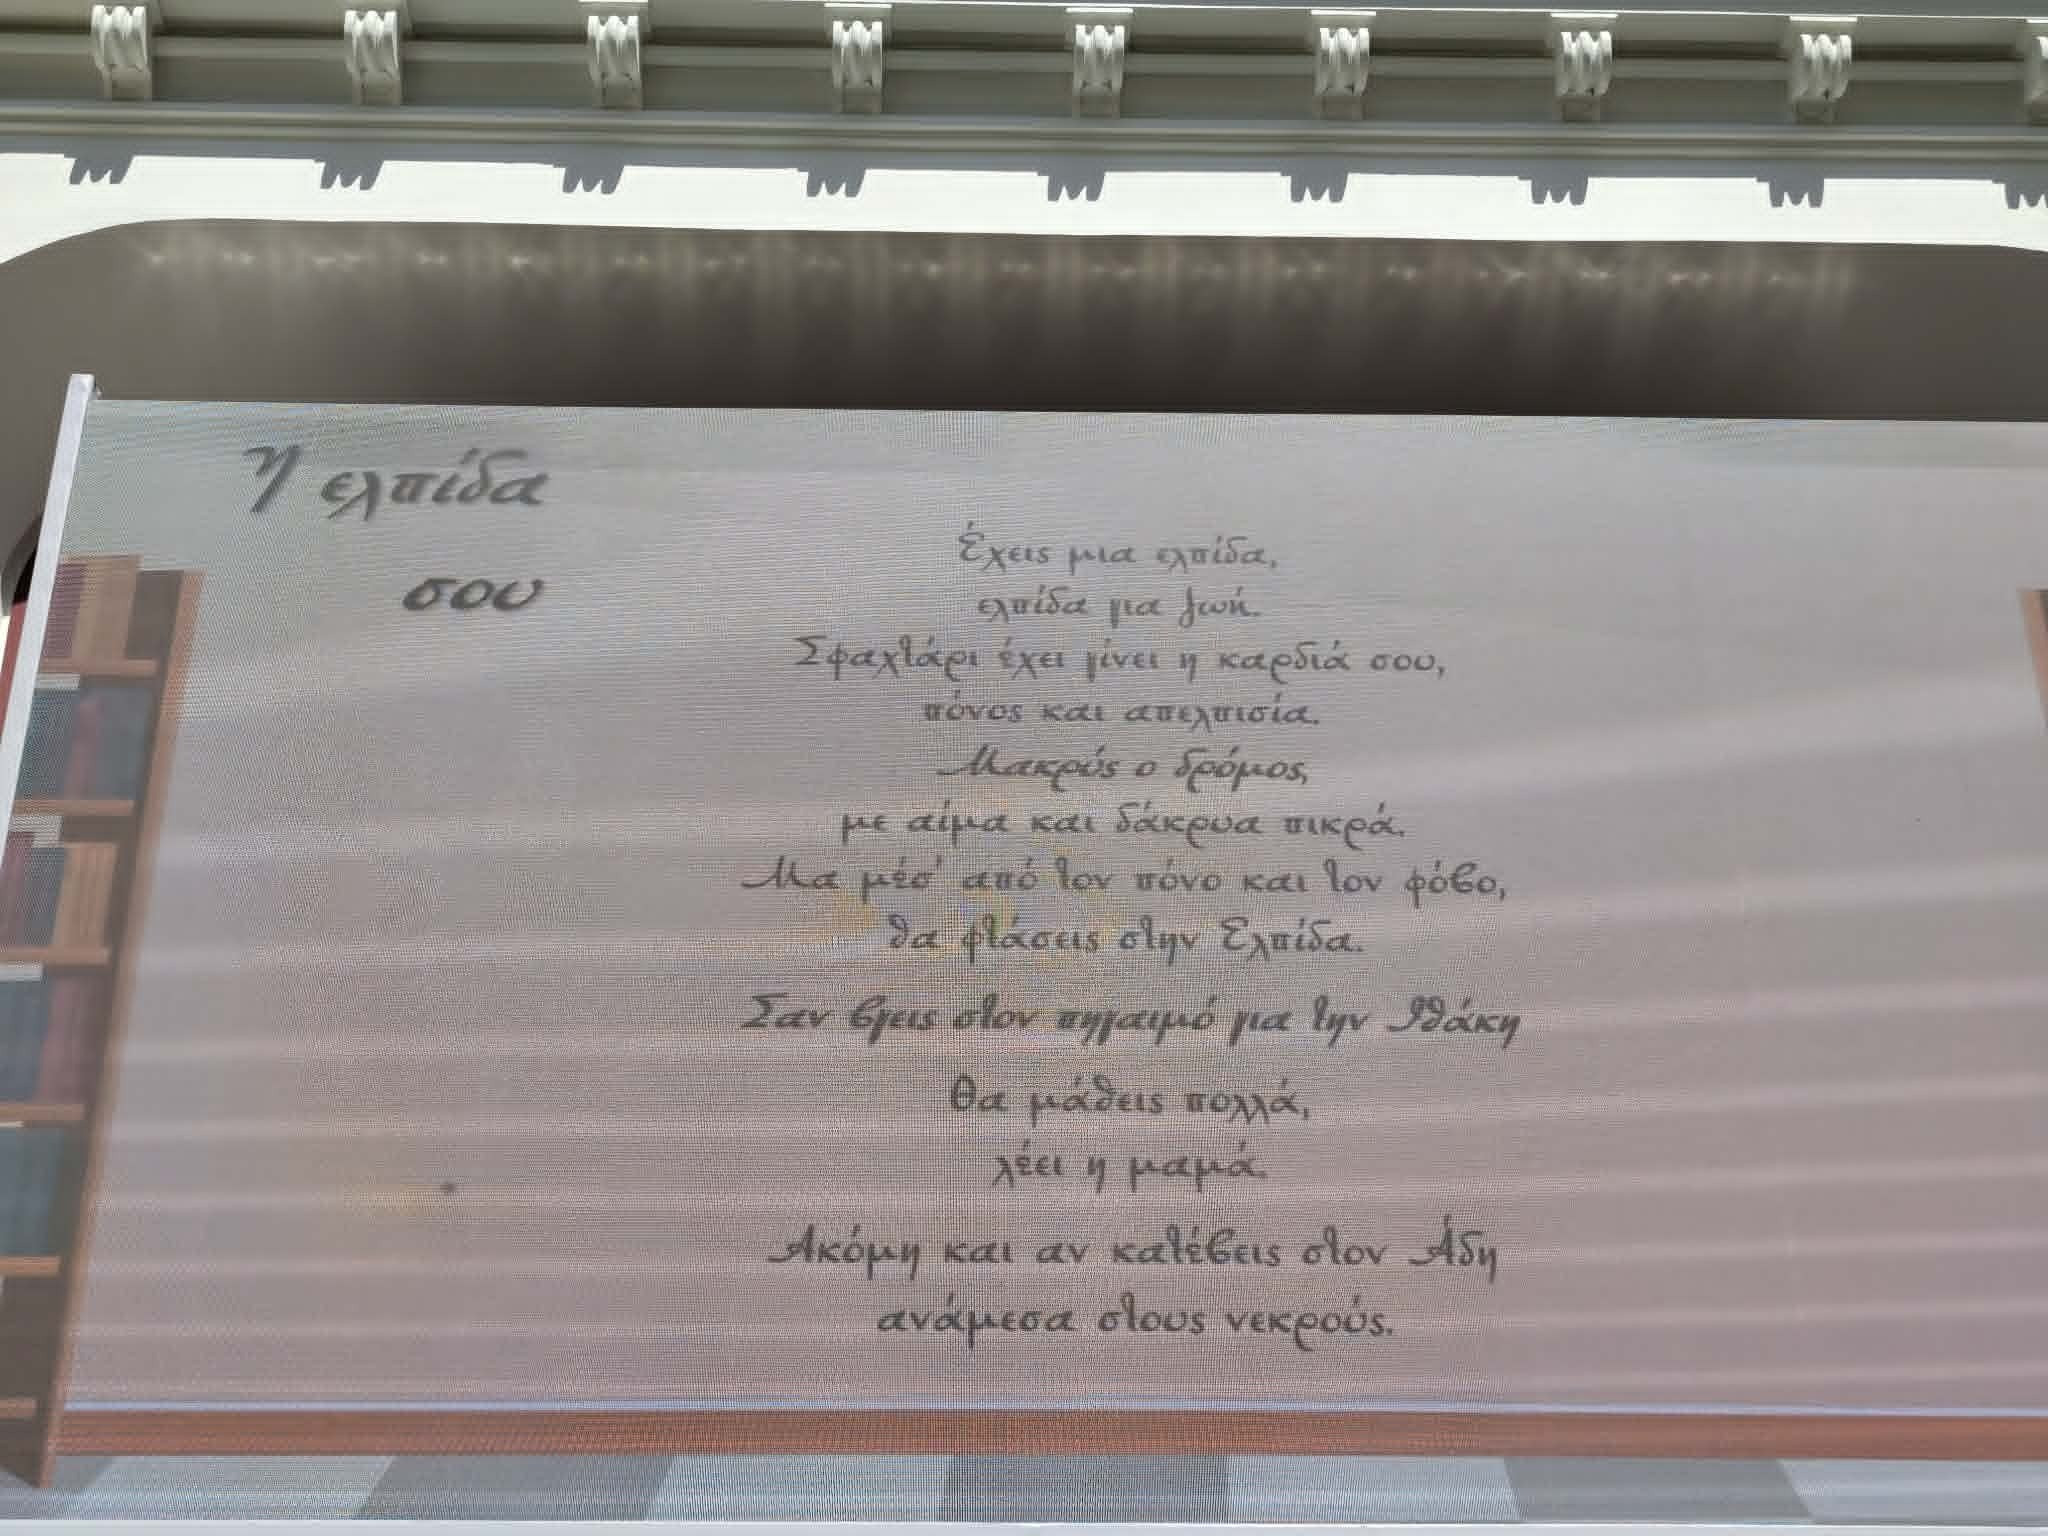 η ελπίδα
σου
Έχεις μια ελπίδα,
ελπίδα για ζωή.
Σφαχτάρι έχει γίνει η καρδιά σου,
πόνος και απελπισία.
Μακρύς ο δρόμος,
με αίμα και δάκρυα πικρά.
Μα μέσ' από τον πόνο και τον φόβο,
θα φτάσεις στην Ελπίδα.
Σαν βγεις στον πηγαιμό για την Ιθάκη
Θα μάθεις πολλά,
λέει η μαμά.
Ακόμη και αν κατέβεις στον Άδη
ανάμεσα στους νεκρούς.